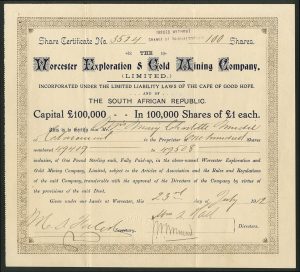 ISSUED WITHOUT
Share Certificate No. 3524 100 Shares.
THE
Worcester Exploration & Gold Mining Company,
(LIMITED.)
INCORPORATED UNDER THE LIMITED LIABILITY LAWS OF THE CAPE OF GOOD HOPE
AND OF
THE SOUTH AFRICAN REPUBLIC.
Capital £100,000 In 100,000 Shares of £1 each.
This is to Certify that Mrs Mary Charlotte
of is the Proprietor One hundred Shares
numbered 49409 49508
inclusive, of One Pound Sterling each, Fully Paid-up, in the above-named Worcester Exploration and
Gold Mining Company, Limited, subject to the Articles of Association and the Rules and Regulations
of the said Company, transferable with the approval of the Directors of the Company by virtue
of the provisions of the said Deed.
Given under our hands at Worcester, this 23rd of July
Secretary. Directors.